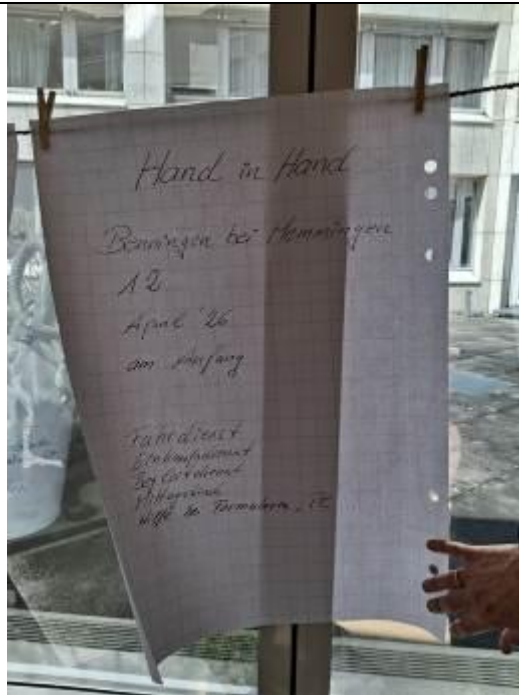 Hand in Hand
Benningen bei Memmingen
12
April '26
am Anfang
Fahrdienst
Einkaufsdienst
Begleitdienst
Hilfe bei Formularen, IT